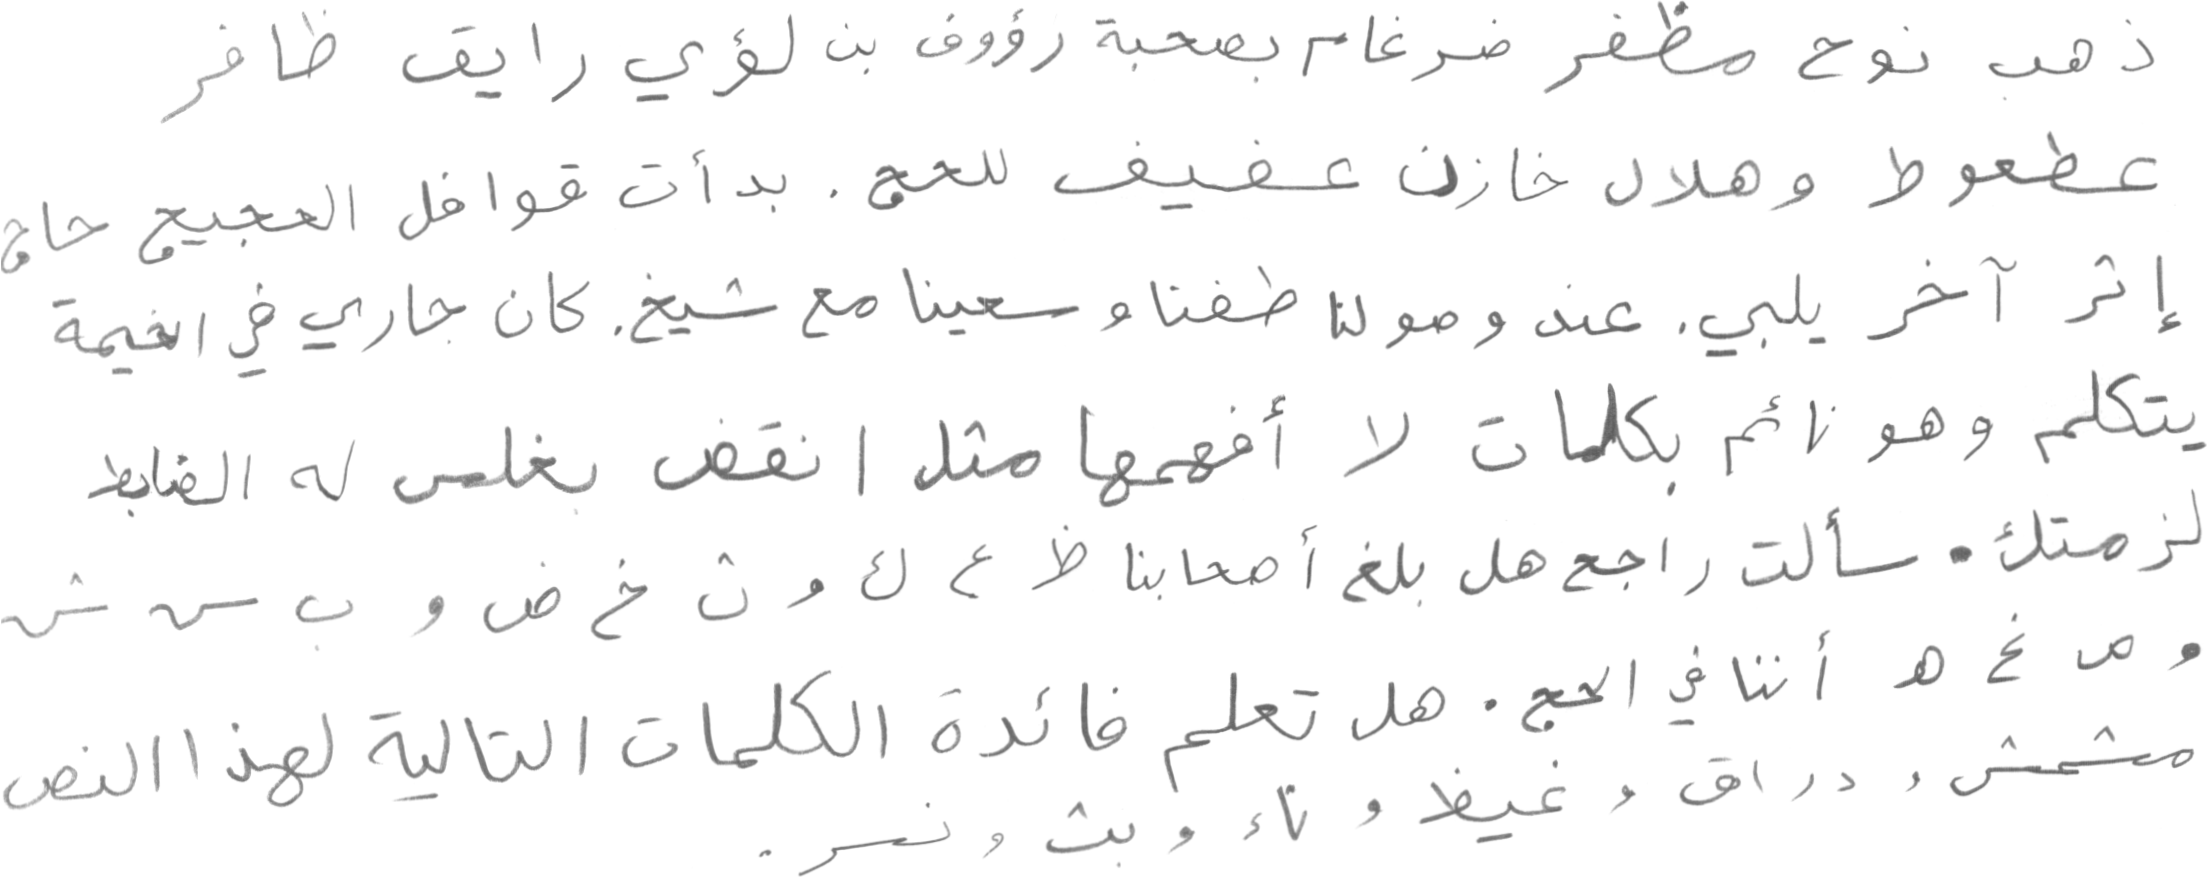 ذهب نوح مظفر ضرغام بصحبة رؤوف بن لؤي رايق ظافر
عطعوط و هلال خازن عفيف للحج . بدأت قوافل الحجيج حاج
إثر آخر يلبي . عند وصولنا طفنا و سعينا مع شيخ . كان جاري في الخيمة
يتكلم وهو نائم بكلمات لا أفهمها مثل انقض بغلس له الضابط
لزمتك . سألت راجع هل بلغ أصحابنا ظ ع ك و ث خ ض و ب س ش
و ص غ ه أننا في الحج . هل تعلم فائدة الكلمات التالية لهذا النص
مشمش و دراق و غيظ و تاء و بث و نسر .